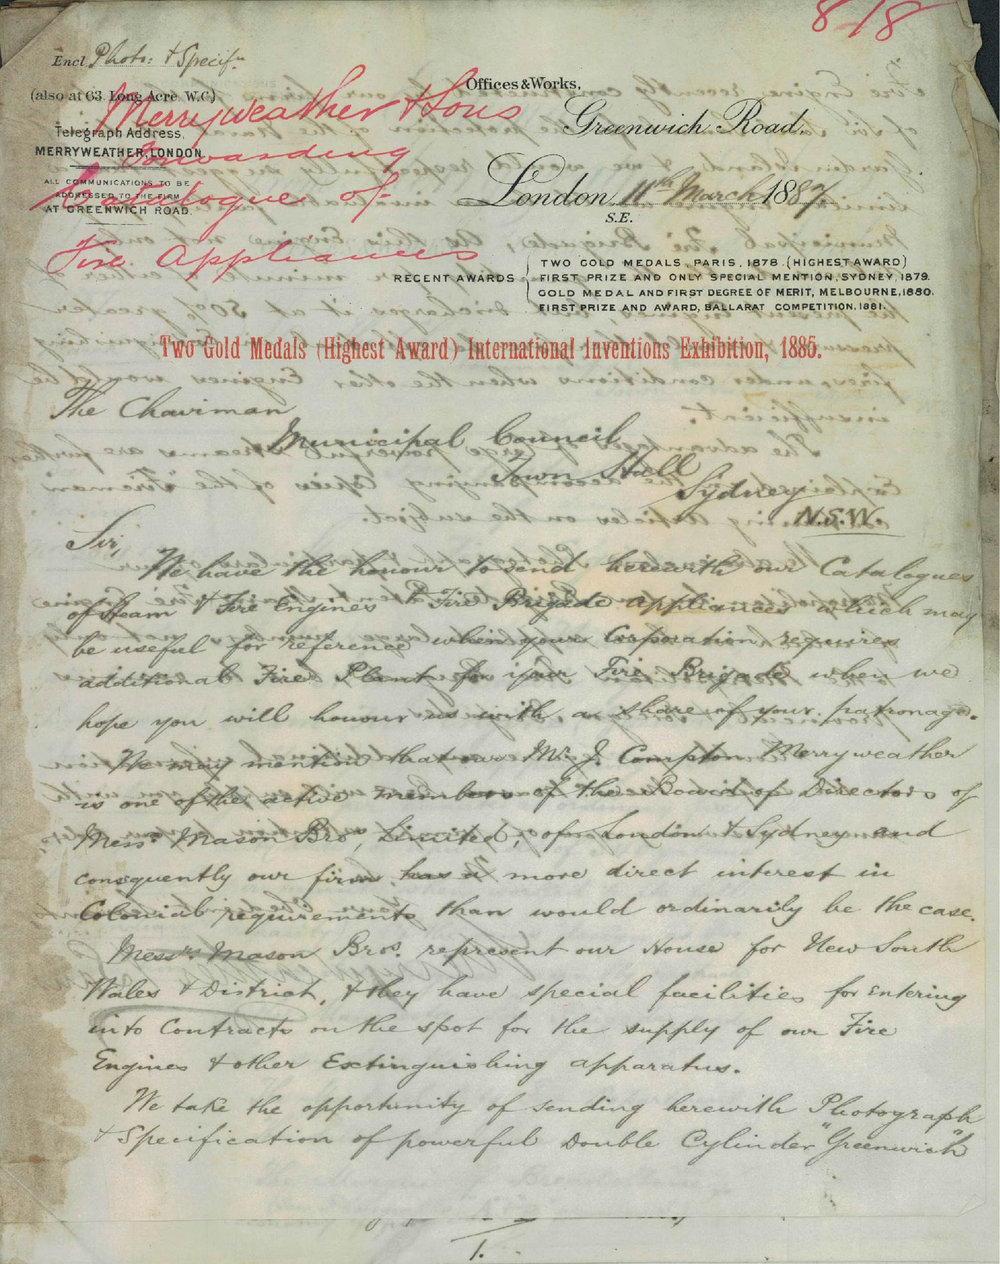 818
Encl Photo: & Specifn
(also at 63, Long Acre W.C)
Telegraph Address,
MERRYWEATHER, LONDON
ALL COMMUNICATIONS TO BE
ADDRESSED TO THE FIRM
AT GREENWICH ROAD.
Merryweather & Sons
Forwarding
Catalogue of
Fire Appliances
Offices & Works,
Greenwich Road,
London, 11th March 1887.
S.E.
RECENT AWARDS
TWO GOLD MEDALS, PARIS, 1878. (HIGHEST AWARD)
FIRST PRIZE AND ONLY SPECIAL MENTION, SYDNEY, 1879.
GOLD MEDAL AND FIRST DEGREE OF MERIT, MELBOURNE, 1880.
FIRST PRIZE AND AWARD, BALLARAT COMPETITION, 1881.
Two Gold Medals (Highest Award) International Inventions Exhibition, 1885.
The Chairman
Municipal Council
Town Hall
Sydney
N.S.W.
Sir,
We have the honour to send herewith our Catalogues
of Steam & Fire Engines & Fire Brigade appliances which may
be useful for reference when your Corporation requires
additional Fire Plant for your Fire Brigade when we
hope you will honour us with a share of your patronage.
We may mention that our Mr. J. Compton Merryweather
is one of the active members of the Board of Directors of
Messrs Mason Bros, Limited, of London & Sydney and
consequently our firm has a more direct interest in
Colonial requirements than would ordinarily be the case.
Messrs. Mason Bros. represent our House for New South
Wales & District, & they have special facilities for entering
into Contracts on the spot for the supply of our Fire
Engines & other Extinguishing apparatus.
We take the opportunity of sending herewith Photograph
& Specification of powerful Double Cylinder "Greenwich"
1.